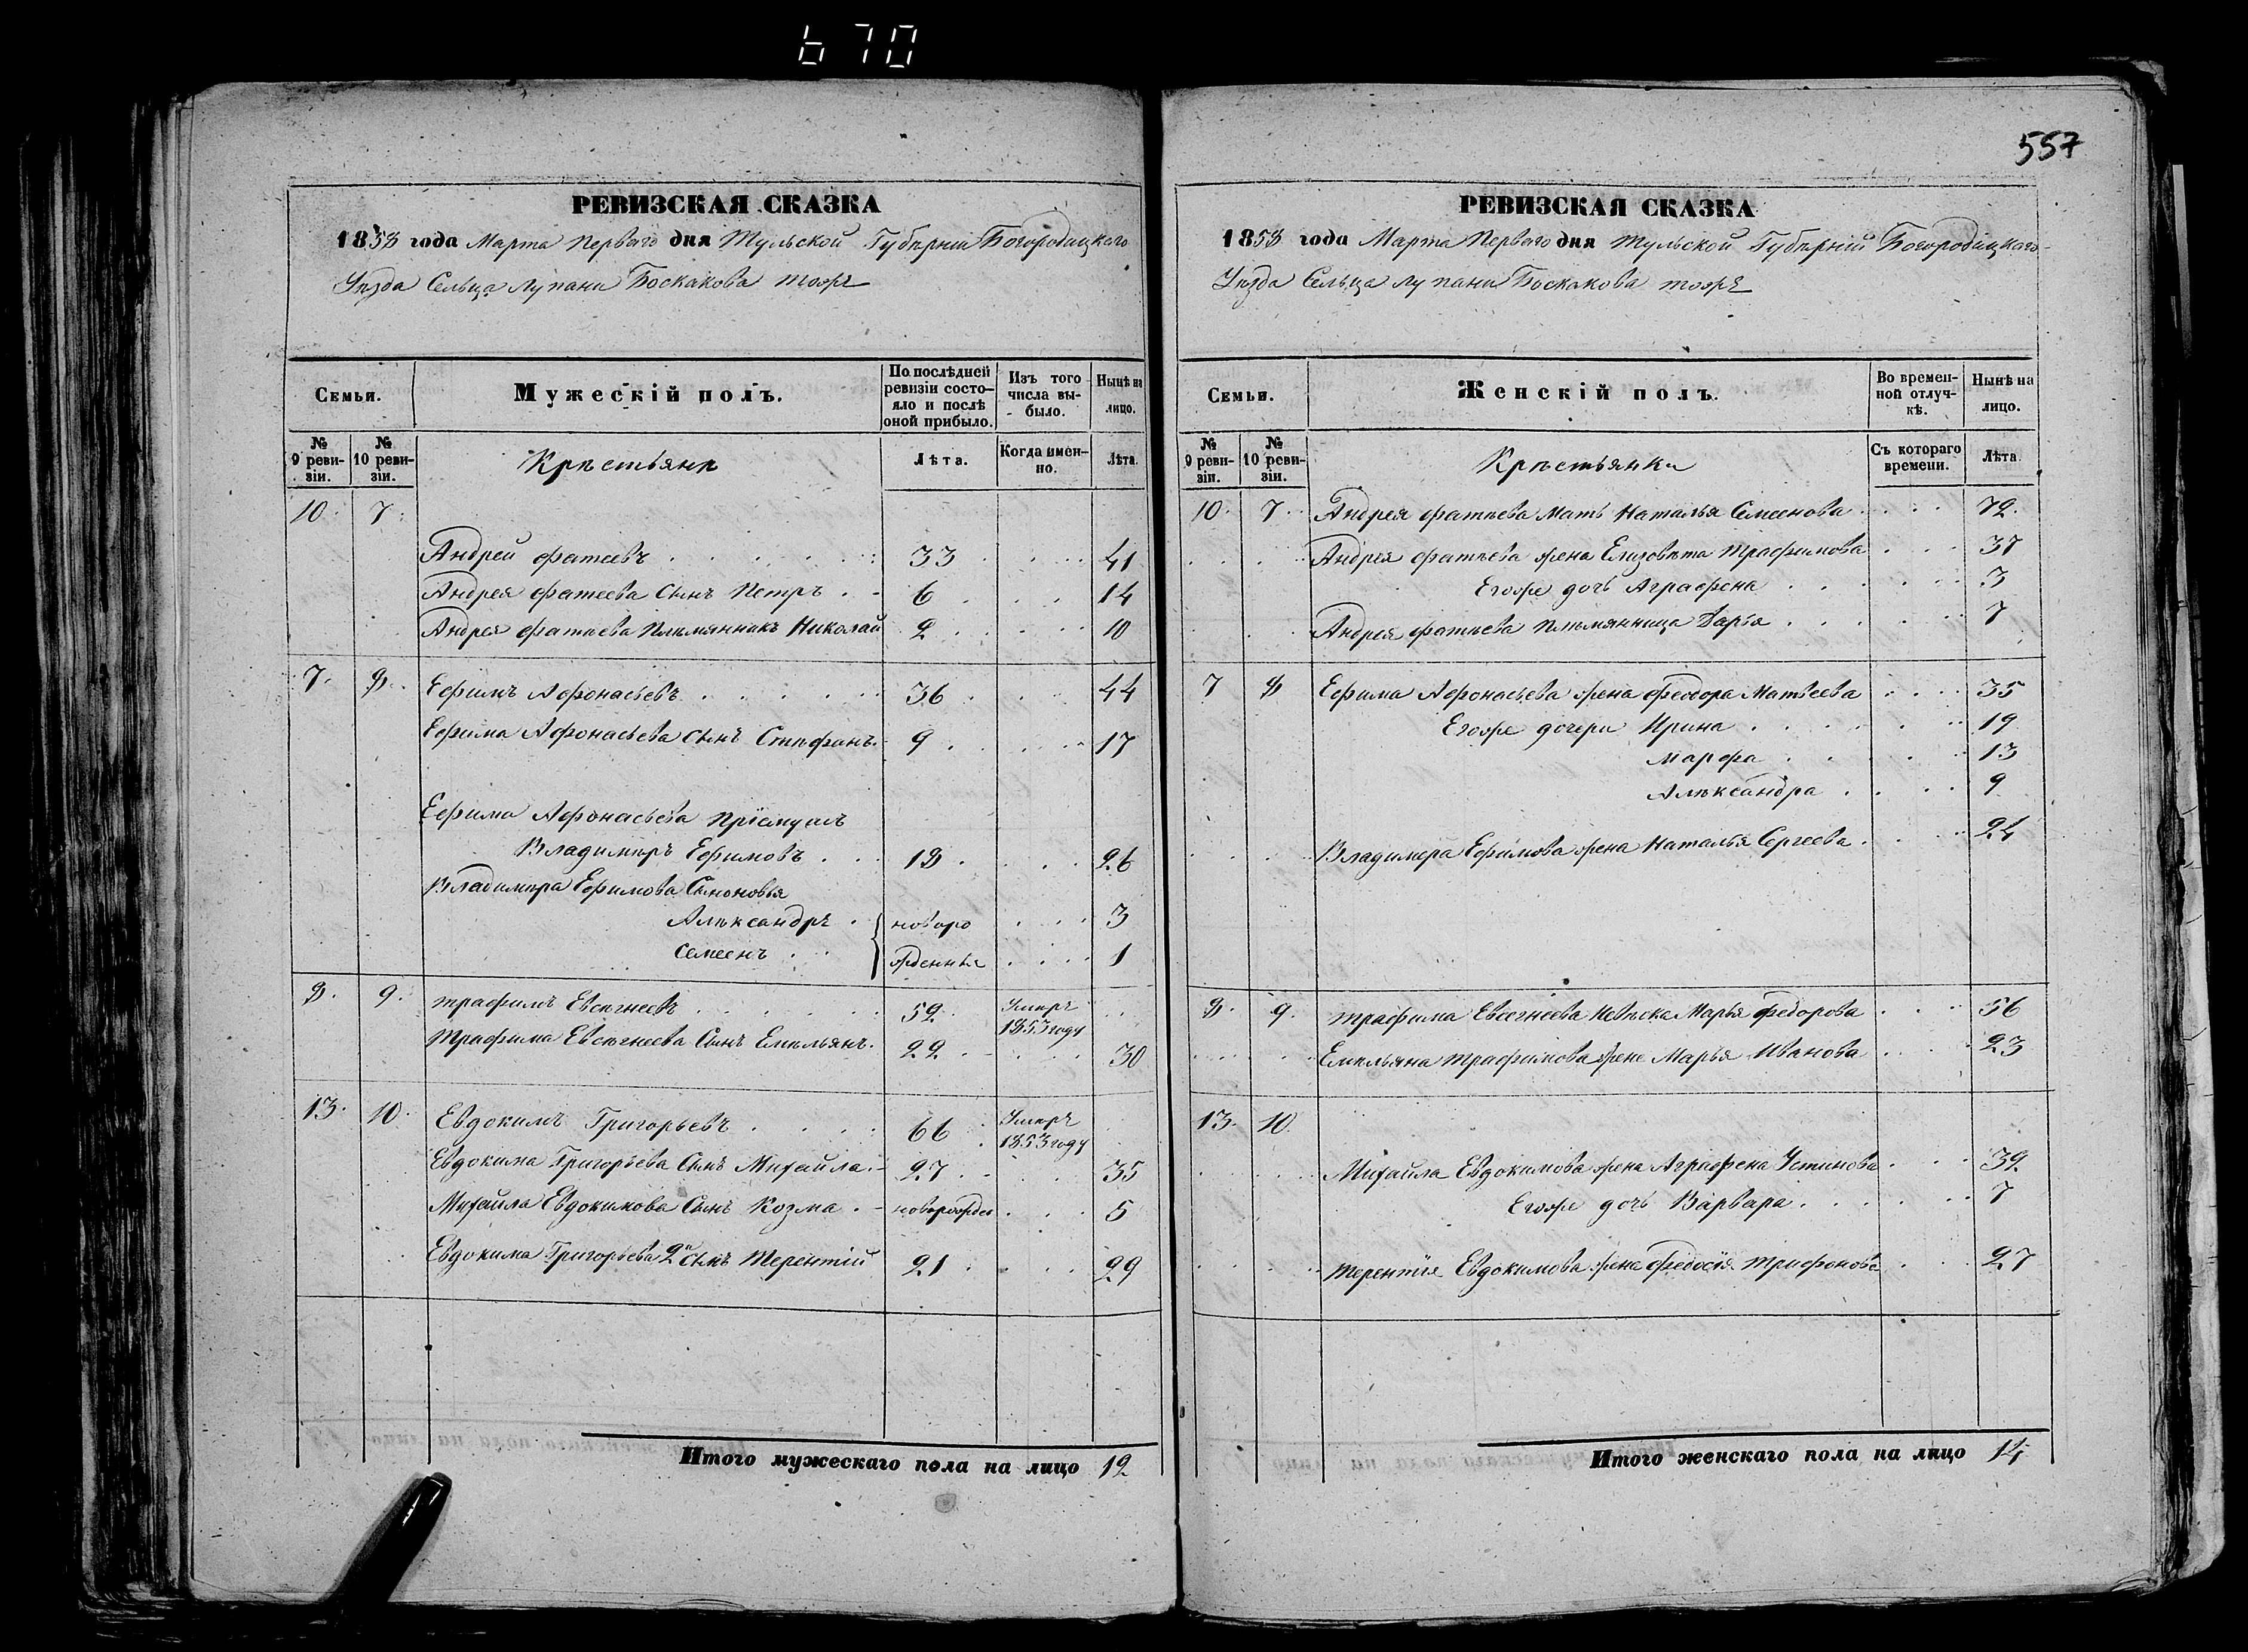 670
РЕВИЗСКАЯ СКАЗКА
1858 года Марта Перваго дня Тульской Губерніи Богородицкаго
Уезда Сельца Лупани Боскакова тожъ
Семьи.
Мужескій полъ.
По послѣдней ревизіи состояло и послѣ оной прибыло.
Изъ того числа выбыло.
Нынѣ на лицо.
№ 9 ревизіи.
№ 10 ревизіи.
Крестьяне
Лѣта.
Когда именно.
Лѣта.
10. 7.
Андрей Фатеевъ 33 41
Андрея Фатеева Сынъ Петръ 6 14
Андрея Фатеева Племянникъ Николай 2 10
7. 8. Ефимъ Афонасьевъ 36 44
Ефима Афонасьева Сынъ Степфанъ 9 17
Ефима Афонасьева Пріемушъ
Владимеръ Ефимовъ 18 26
Владимера Ефимова Сыновья
Александръ новоро 3
Семеенъ жденныя 1
8. 9. Трафимъ Евсегнеевъ 52 Умеръ 1853 году
Трафима Евсегнеева Сынъ Емельянъ 22 30
13. 10. Евдокимъ Григорьевъ 66 Умеръ 1853 году
Евдокима Григорьева Сынъ Михайла 27 35
Михайла Евдокимова Сынъ Козма новорожден 5
Евдокима Григорьева 2й Сынъ Терентій 21 29
Итого мужескаго пола на лицо 12
557
РЕВИЗСКАЯ СКАЗКА
1858 года Марта Перваго дня Тульской Губерній Богородицкаго
Уезда Сельца Лупани Боскакова тожъ
Семьи.
Женскій полъ.
Во временной отлучкѣ.
Нынѣ на лицо.
№ 9 ревизіи.
№ 10 ревизіи.
Крестьянки
Съ котораго времени.
Лѣта.
10. 7. Андрея Фатеева Мать Наталья Семеенова 72
Андрея Фатеева жена Елизовета Трафимова 37
Егоже дочь Аграфена 3
Андрея Фатеева Племянница Дарья 7
7 8 Ефима Афонасьева жена Феодора Матвеева 35
Егоже дочери Ирина 19
Марфа 13
Александра 9
Владимера Ефимова жена Наталья Сергеева 24
8. 9. Трафима Евсегнеева Невеска Марья Федорова 56
Емельяна Трафимова жена Марья Иванова 23
13. 10.
Михайла Евдокимова жена Аграфена Устинова 32
Егоже дочь Варвара 7
Терентія Евдокимова жена Федосія Трифонова 27
Итого женскаго пола на лицо 14